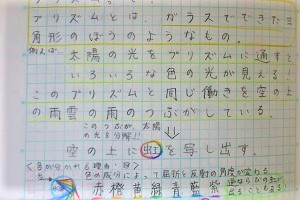 プリズムとは、ガラスでできた三
角形のぼうのようなもの。
例えば、太陽の光をプリズムに通すと
いろいろな色の光が見える!
このプリズムと同じ働きを空の上
の雨雲の雨のつぶがしている。
このつぶが、太陽
の光を分解!!
空の上に虹を写し出す。
色の成分によって屈折と反射の角度が変わる
赤橙黄緑青藍紫